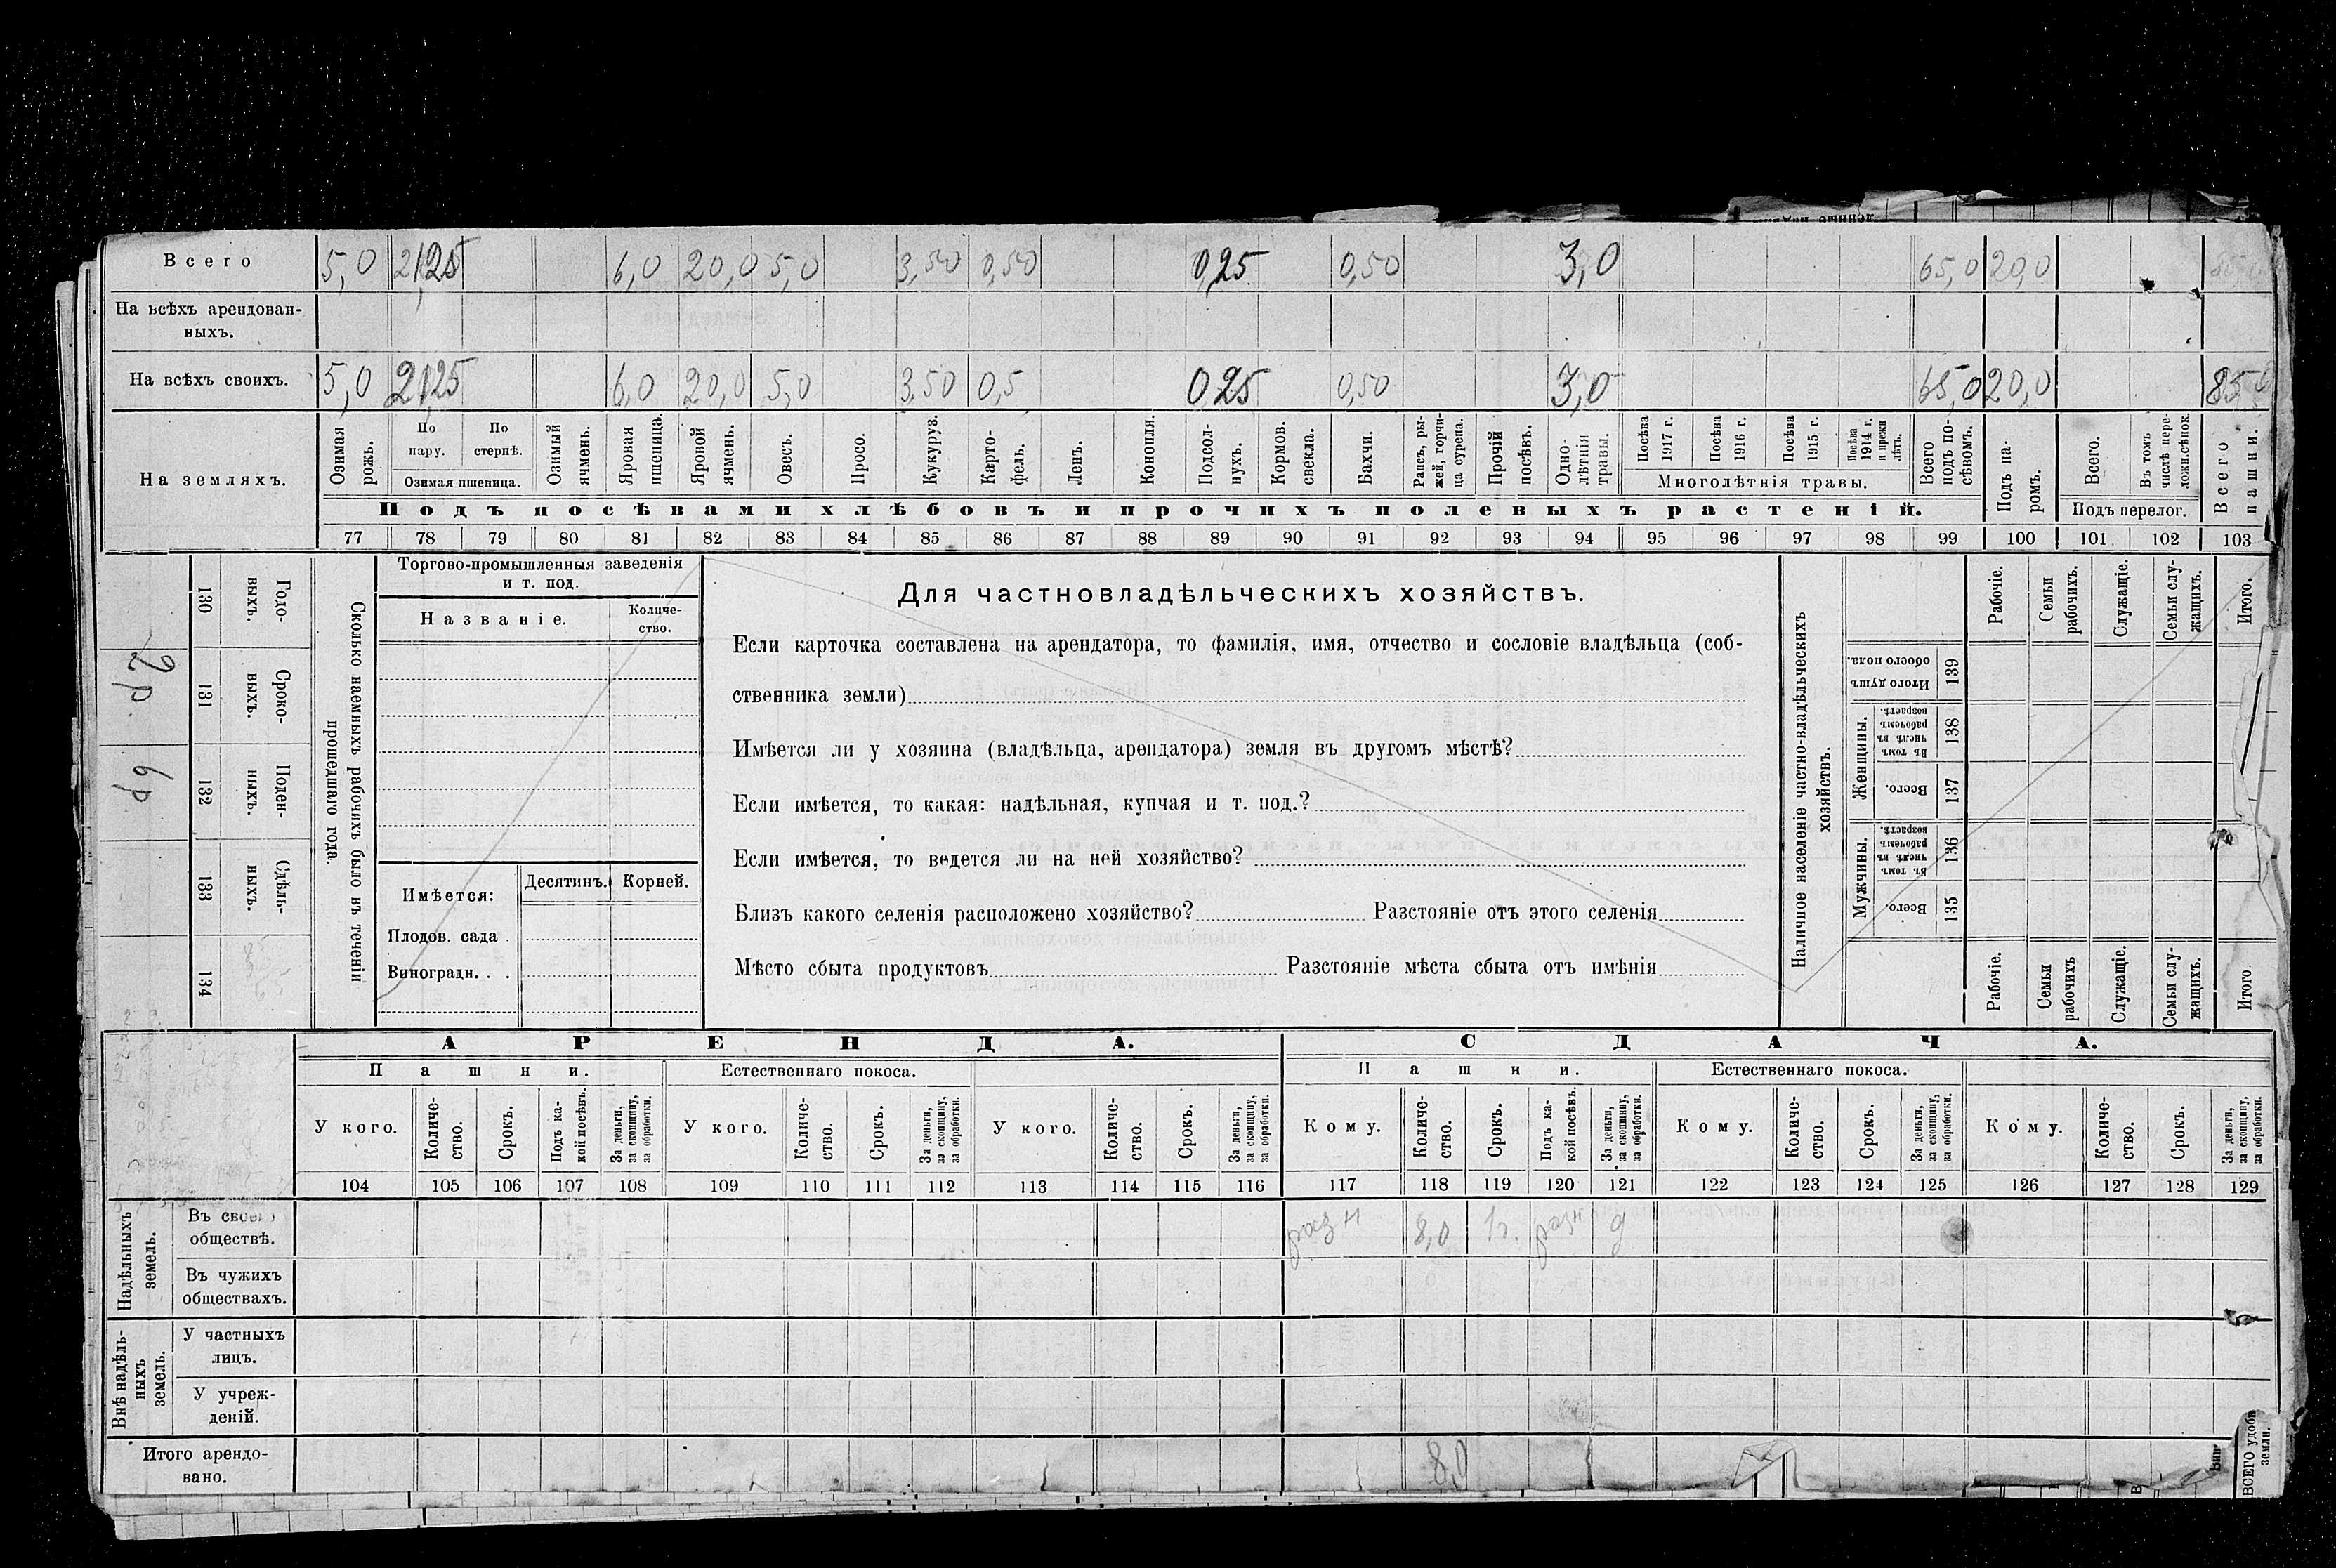 Всего 5,0 21,25 6,0 20,0 5,0 3,50 0,50 0,25 0,50 3,0 65,0 20,0 85,0
На всѣхъ арендован-
ныхъ.
На всѣхъ своихъ. 5,0 21,25 6,0 20,0 5,0 3,50 0,5 0,25 0,50 3,0 65,0 20,0 85,0
На земляхъ.
Озимая рожь.
По пару.
По стернѣ.
Озимая пшеница.
Озимый ячмень.
Яровая пшеница.
Яровой ячмень.
Овесъ.
Просо.
Кукуруз.
Карто-
фель.
Ленъ.
Конопля.
Подсол-
нухъ.
Кормов. свекла.
Бахчи.
Рапсъ, ры-
жей, горчи-
ца сурепа.
Прочій посѣвъ.
Одно-
лѣтнія травы.
Посѣва 1917 г.
Посѣва 1916 г.
Посѣва 1915 г.
Посѣва 1914 г. и прежн лѣтъ.
Многолѣтнія травы.
Всего подъ по-
сѣвомъ.
Подъ па-
ромъ.
Всего.
Въ томъ числѣ пере-
ложн.сѣнок.
Подъ перелог.
Всего пашни.
Подъ посѣвами хлѣбовъ и прочихъ полевыхъ растеній.
77 78 79 80 81 82 83 84 85 86 87 88 89 90 91 92 93 94 95 96 97 98 99 100 101 102 103
Сколько наемныхъ рабочихъ было въ теченіи
прошедшаго года.
Годо-
выхъ.
130
Сроко-
выхъ.
131
2р
Поден-
ныхъ.
132
6р
Сдѣль-
ныхъ.
133
134
Торгово-промышленныя заведенія
и т. под.
Названіе.
Количе-
ство.
Имѣется:
Десятинъ. Корней.
Плодов. сада .
Виноградн. . .
Для частновладѣльческихъ хозяйствъ.
Если карточка составлена на арендатора, то фамилія, имя, отчество и сословіе владѣльца (соб-
ственника земли)
Имѣется ли у хозяина (владѣльца, арендатора) земля въ другомъ мѣстѣ?
Если имѣется, то какая: надѣльная, купчая и т. под.?
Если имѣется, то ведется ли на ней хозяйство?
Близъ какого селенія расположено хозяйство? Разстояніе отъ этого селенія
Мѣсто сбыта продуктовъ Разстояніе мѣста сбыта отъ имѣнія
Наличное населеніе частно-владѣльческихъ
хозяйствъ.
Рабочіе.
Семьи рабочихъ.
Служащіе.
Семьи слу-
жащихъ.
Итого.
Итого душъ обоего пола.
139
Женщины.
Въ томъ числѣ въ рабочемъ возрастѣ.
138
Всего.
137
Мужчины.
Въ томъ числѣ въ рабочемъ возрастѣ.
136
Всего.
135
Рабочіе.
Семьи рабочихъ
Служащіе.
Семьи слу-
жащихъ.
Итого
АРЕНДА. СДАЧА.
Пашни. Естественнаго покоса. Пашни. Естественнаго покоса.
У кого.
Количе-
ство.
Срокъ.
Подъ ка-
кой посѣвъ.
За деньги, за скопщину, за обработки.
У кого.
Количе-
ство.
Срокъ.
За деньги, за скопщину, за обработки.
У кого.
Количе-
ство.
Срокъ.
За деньги, за скопщину, за обработки.
Кому.
Количе-
ство.
Срокъ.
Подъ ка-
кой посѣвъ.
За деньги, за скопщину, за обработки.
Кому.
Количе-
ство.
Срокъ.
За деньги, за скопщину, за обработки.
Кому.
Количе-
ство.
Срокъ.
За деньги, за скопщину, за обработки.
104 105 106 107 108 109 110 111 112 113 114 115 116 117 118 119 120 121 122 123 124 125 126 127 128 129
Надѣльныхъ
земель.
Въ своемъ
обществѣ.
разн 8,0 1г. разн д
Въ чужихъ
обществахъ.
Внѣ надѣль-
ныхъ
земель.
У частныхъ
лицъ.
У учреж-
деній.
Итого арендо-
вано.
8,0
ВСЕГО удобн
земли.